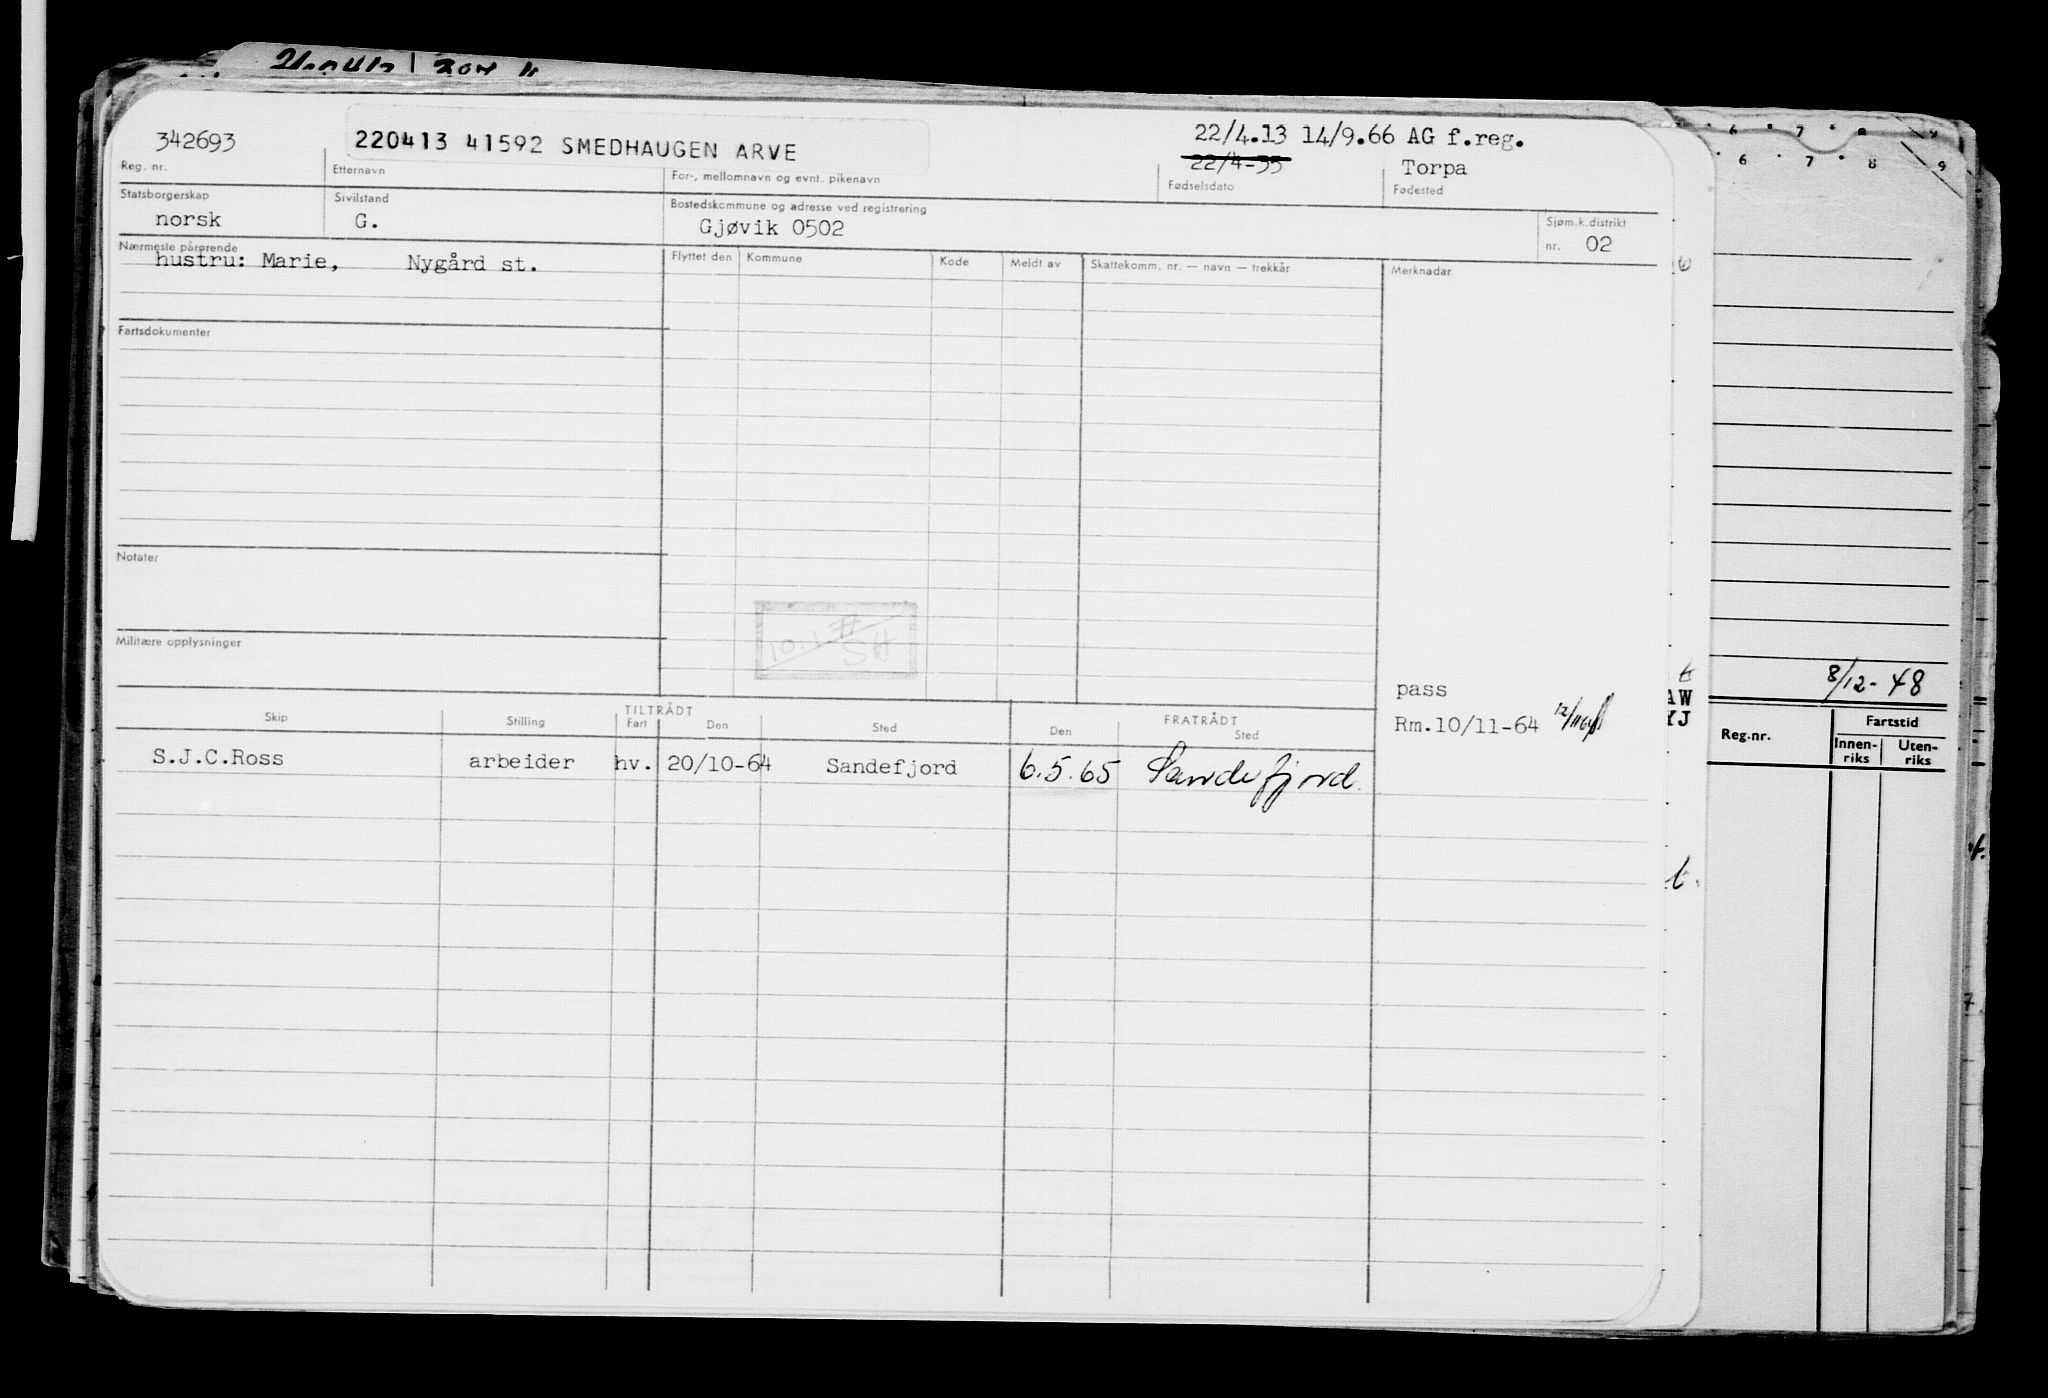 342693
220413 41592 SMEDHAUGEN ARVE
22/4.13 14/9.66 AG f.reg.
22/4-35
Torpa
Reg. nr.
Etternavn
For-, mellomnavn og evnt. pikenavn
Fødselsdato
Fødested
Statsborgerskap
Sivilstand
Bostedskommune og adresse ved registrering
Sjøm.k.distrikt
norsk
G.
Gjøvik 0502
nr. 02
Nærmeste pårørende
hustru: Marie, Nygård st.
Flyttet den
Kommune
Kode
Meldt av
Skattekomm. nr. — navn — trekkår
Merknadar
Fartsdokumenter
Notater
Militære opplysninger
pass
Rm.10/11-64
TILTRÅDT
FRATRÅDT
Skip
Stilling
Fart
Den
Sted
Den
Sted
S.J.C.Ross
arbeider
hv.
20/10-64
Sandefjord
6.5.65
Sandefjord.
6 7 8 9
6 7 8 9
8/12-48
AW
YJ
Reg.nr.
Fartstid
Innen-
riks
Uten-
riks